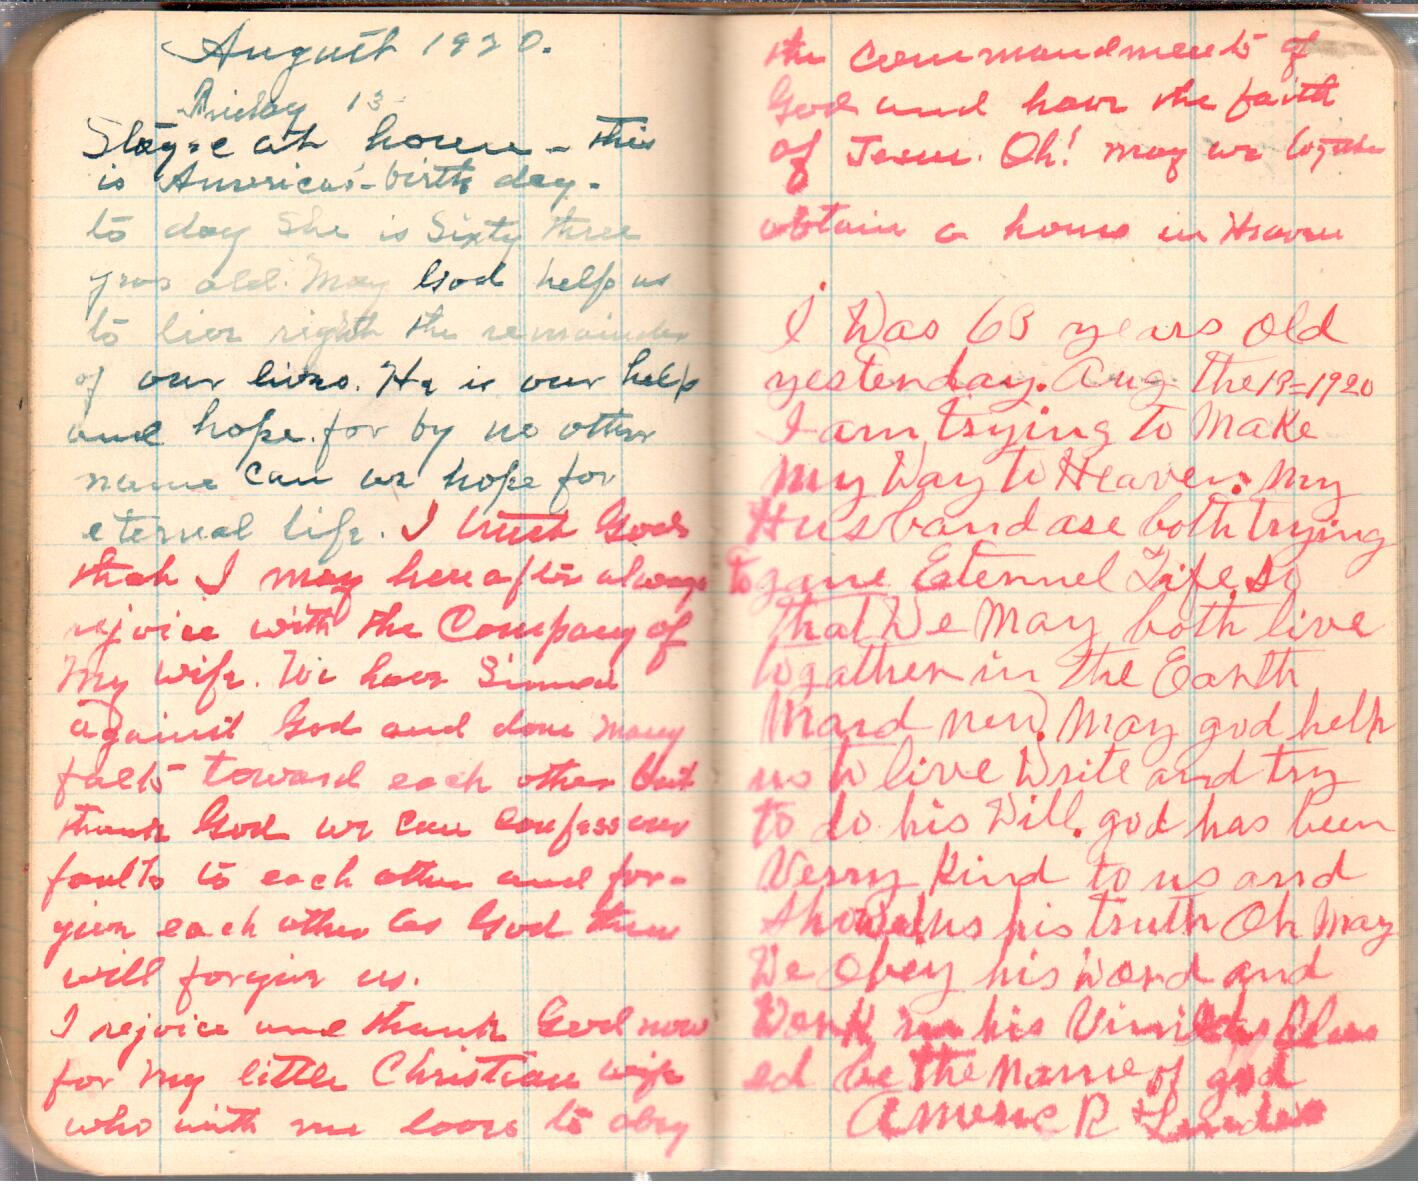 August 1920.
Friday 13
Stayed at home - this
is America's - birth day -
to day She is Sixty three
years old. May God help us
to live right the remainder
of our lives. He is our help
and hope. for by no other
name can we hope for
eternal life. I trust God
that I may hereafter always
rejoice with the Company of
My wife. We have Sinned
against God and done many
falts toward each other but
thank God we can confess our
faults to each other and for-
give each other as God then
will forgive us.
I rejoice and thank God now
for my little Christian wife
who with me loves to obey
the commandments of
God and have the faith
of Jesus. Oh! may we together
obtain a home in Heaven
I Was 63 years old
yesterday. Aug. the 13=1920
I am trying to Make
my Way to Heaven. My
Husband ase both trying
to gane Eternel Life. So
that We May both live
togather in the Earth
Maid new. May god help
us to live Write and try
to do his Will. god has been
Verry Kind to us and
Showed us his truth Oh May
We Obey his Word and
Work in his Bless
ed be the Name of god
R